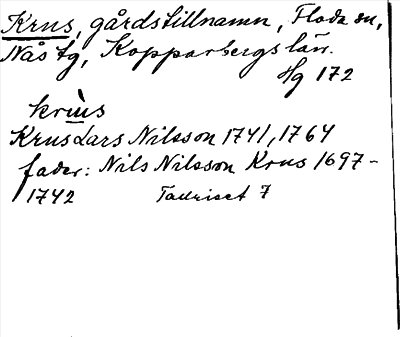 Krus, gårdstillnamn, Floda sn,
Nås tg, Kopparbergs län.
Hg 172
krus
Krus Lars Nilsson 1741, 1764
fader: Nils Nilsson Krus 1697-
1742 7